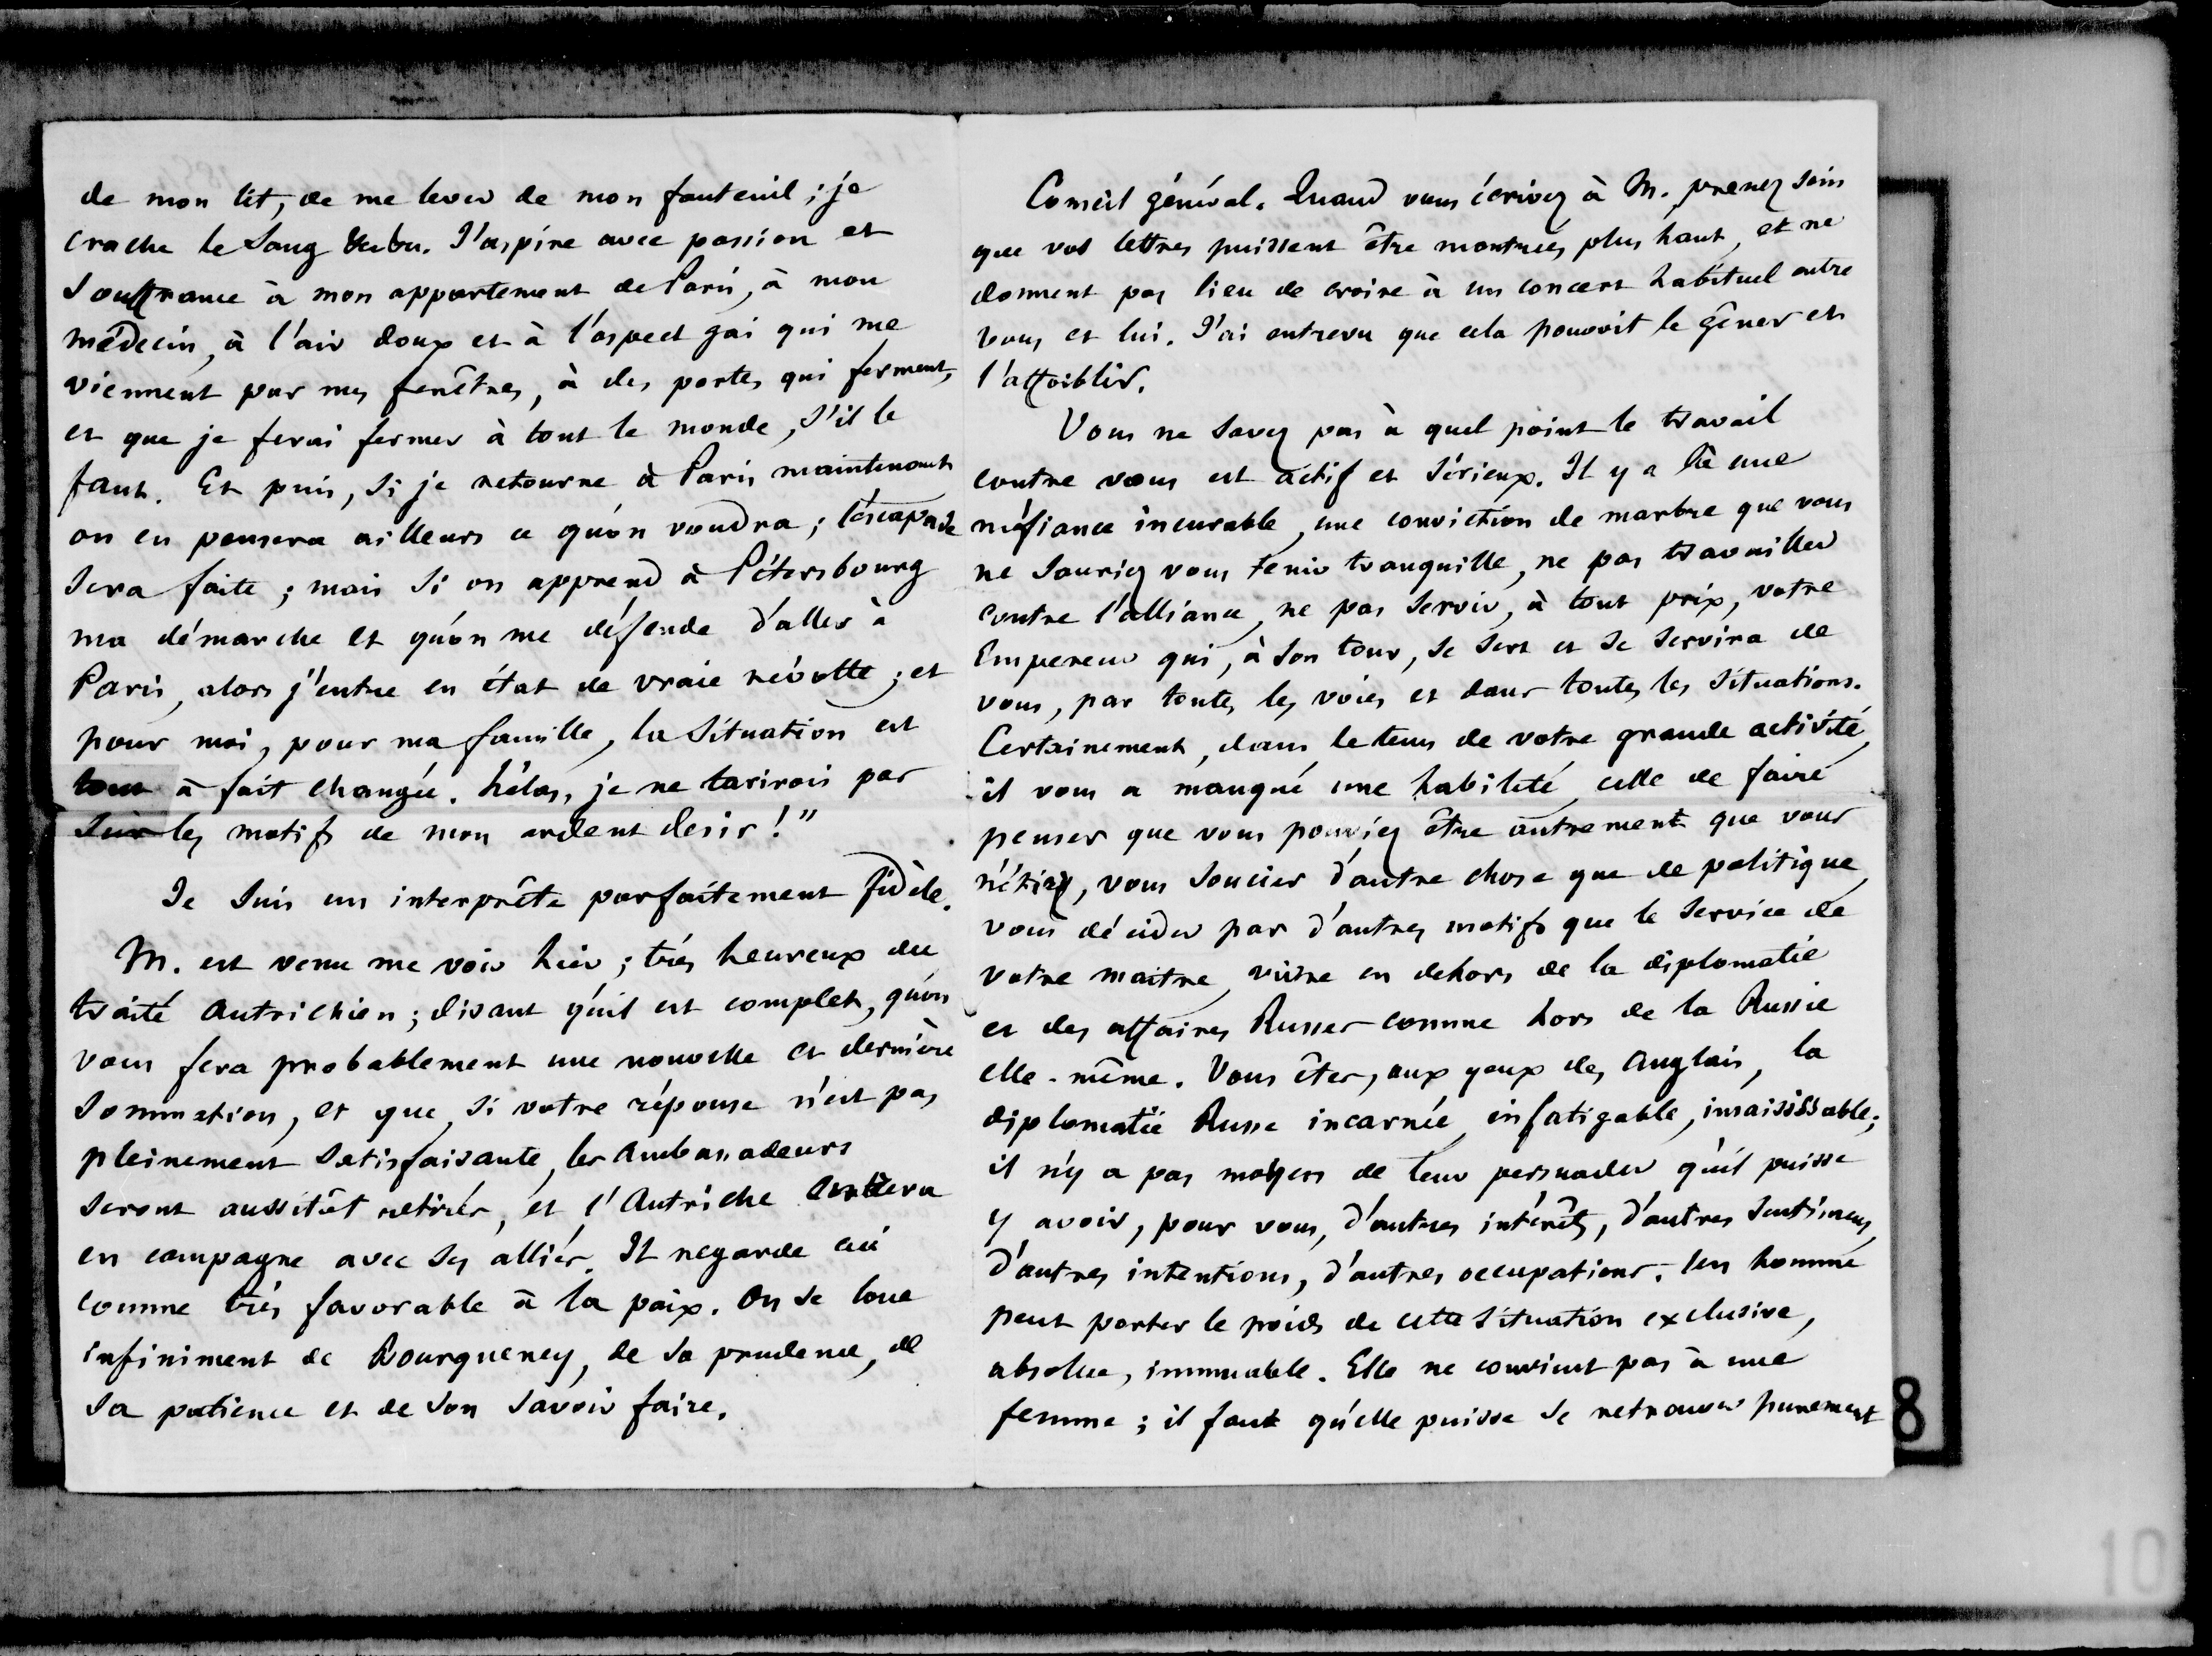 de mon lit, de me lever de mon fauteuil ; je
crache le sang
J'aspire avec passion et
souffrance à mon appartement de Paris, à mon
médecin, à l'air doux et à l'aspect gai qui me
viennent par mes fenêtres, à des portes qui ferment,
et que je ferai fermer à tout le monde, s'il le
faut. Et puis, si je retourne à Paris maintenant
on en pensera ailleurs ce qu'on voudra ; l'escapade
sera faite ; mais si on apprend à Pétersbourg
ma démarche et qu'on me défende d'aller à
Paris, alors j'entre en état de vraie révolte ; et
pour moi, pour ma famille, la situation est
tout à fait changée. hélas, je ne tarirois pas
sur les motifs de mon ardent desir ! "
Je suis un interprête parfaitement fidèle.
M. est venu me voir hier ; très heureux du
traité Autrichien ; disant qu'il est complet, qu'on
vous fera probablement une nouvelle et dernière
sommation, et que, si votre réponse n'est pas
pleinement satisfaisante, les Ambassadeurs
seront aussitôt retirés, et l'Autriche entrera
en campagne avec ses alliés. Il regarde ceci
comme très favorable à la paix. On se loue
infiniment de Bourqueney, de sa prudence, de
sa patience et de son savoir faire.
Conseil général. Quand vous écrivez à M. prenez soin
que vos lettres puissent être montrées plus haut, et ne
donnent pas lieu de croire à un concert habituel entre
vous et lui. J'ai entrevu que cela pouvoit le gêner et
l'affoiblir.
Vous ne savez pas à quel point le travail
contre vous est actif et sérieux. Il y a là une
méfiance incurable, une conviction de marbre que vous
ne sauriez vous tenir tranquille, ne pas travailler
contre l'alliance, ne pas servir, à tout prix, votre
Empereur qui, à son tour, se sert et se servira de
vous, par toutes les voies et dans toutes les situations.
Certainement, dans le tems de votre grande activité,
il vous a manqué une habileté, celle de faire
penser que vous pouviez être autrement que vous
n'étiez, vous soucier d'autre chose que de politique,
vous décider par d'autres motifs que le service de
votre maitre, vivre en dehors de la diplomatie
et des affaires Russes comme hors de la Russie
elle-même. Vous êtes, aux yeux des Anglais, la
diplomatie Russe incarnée, infatigable, insaisissable ;
il n'y a pas moyen de leur persuader qu'il puisse
y avoir, pour vous, d'autres intérêts, d'autres sentimens,
d'autres intentions, d'autres occupations. Un homme
peut porter le poids de cette situation exclusive,
absolue, immuable. Elle ne convient pas à une
femme ; il faut qu'elle puisse se retrouver purement
8
10